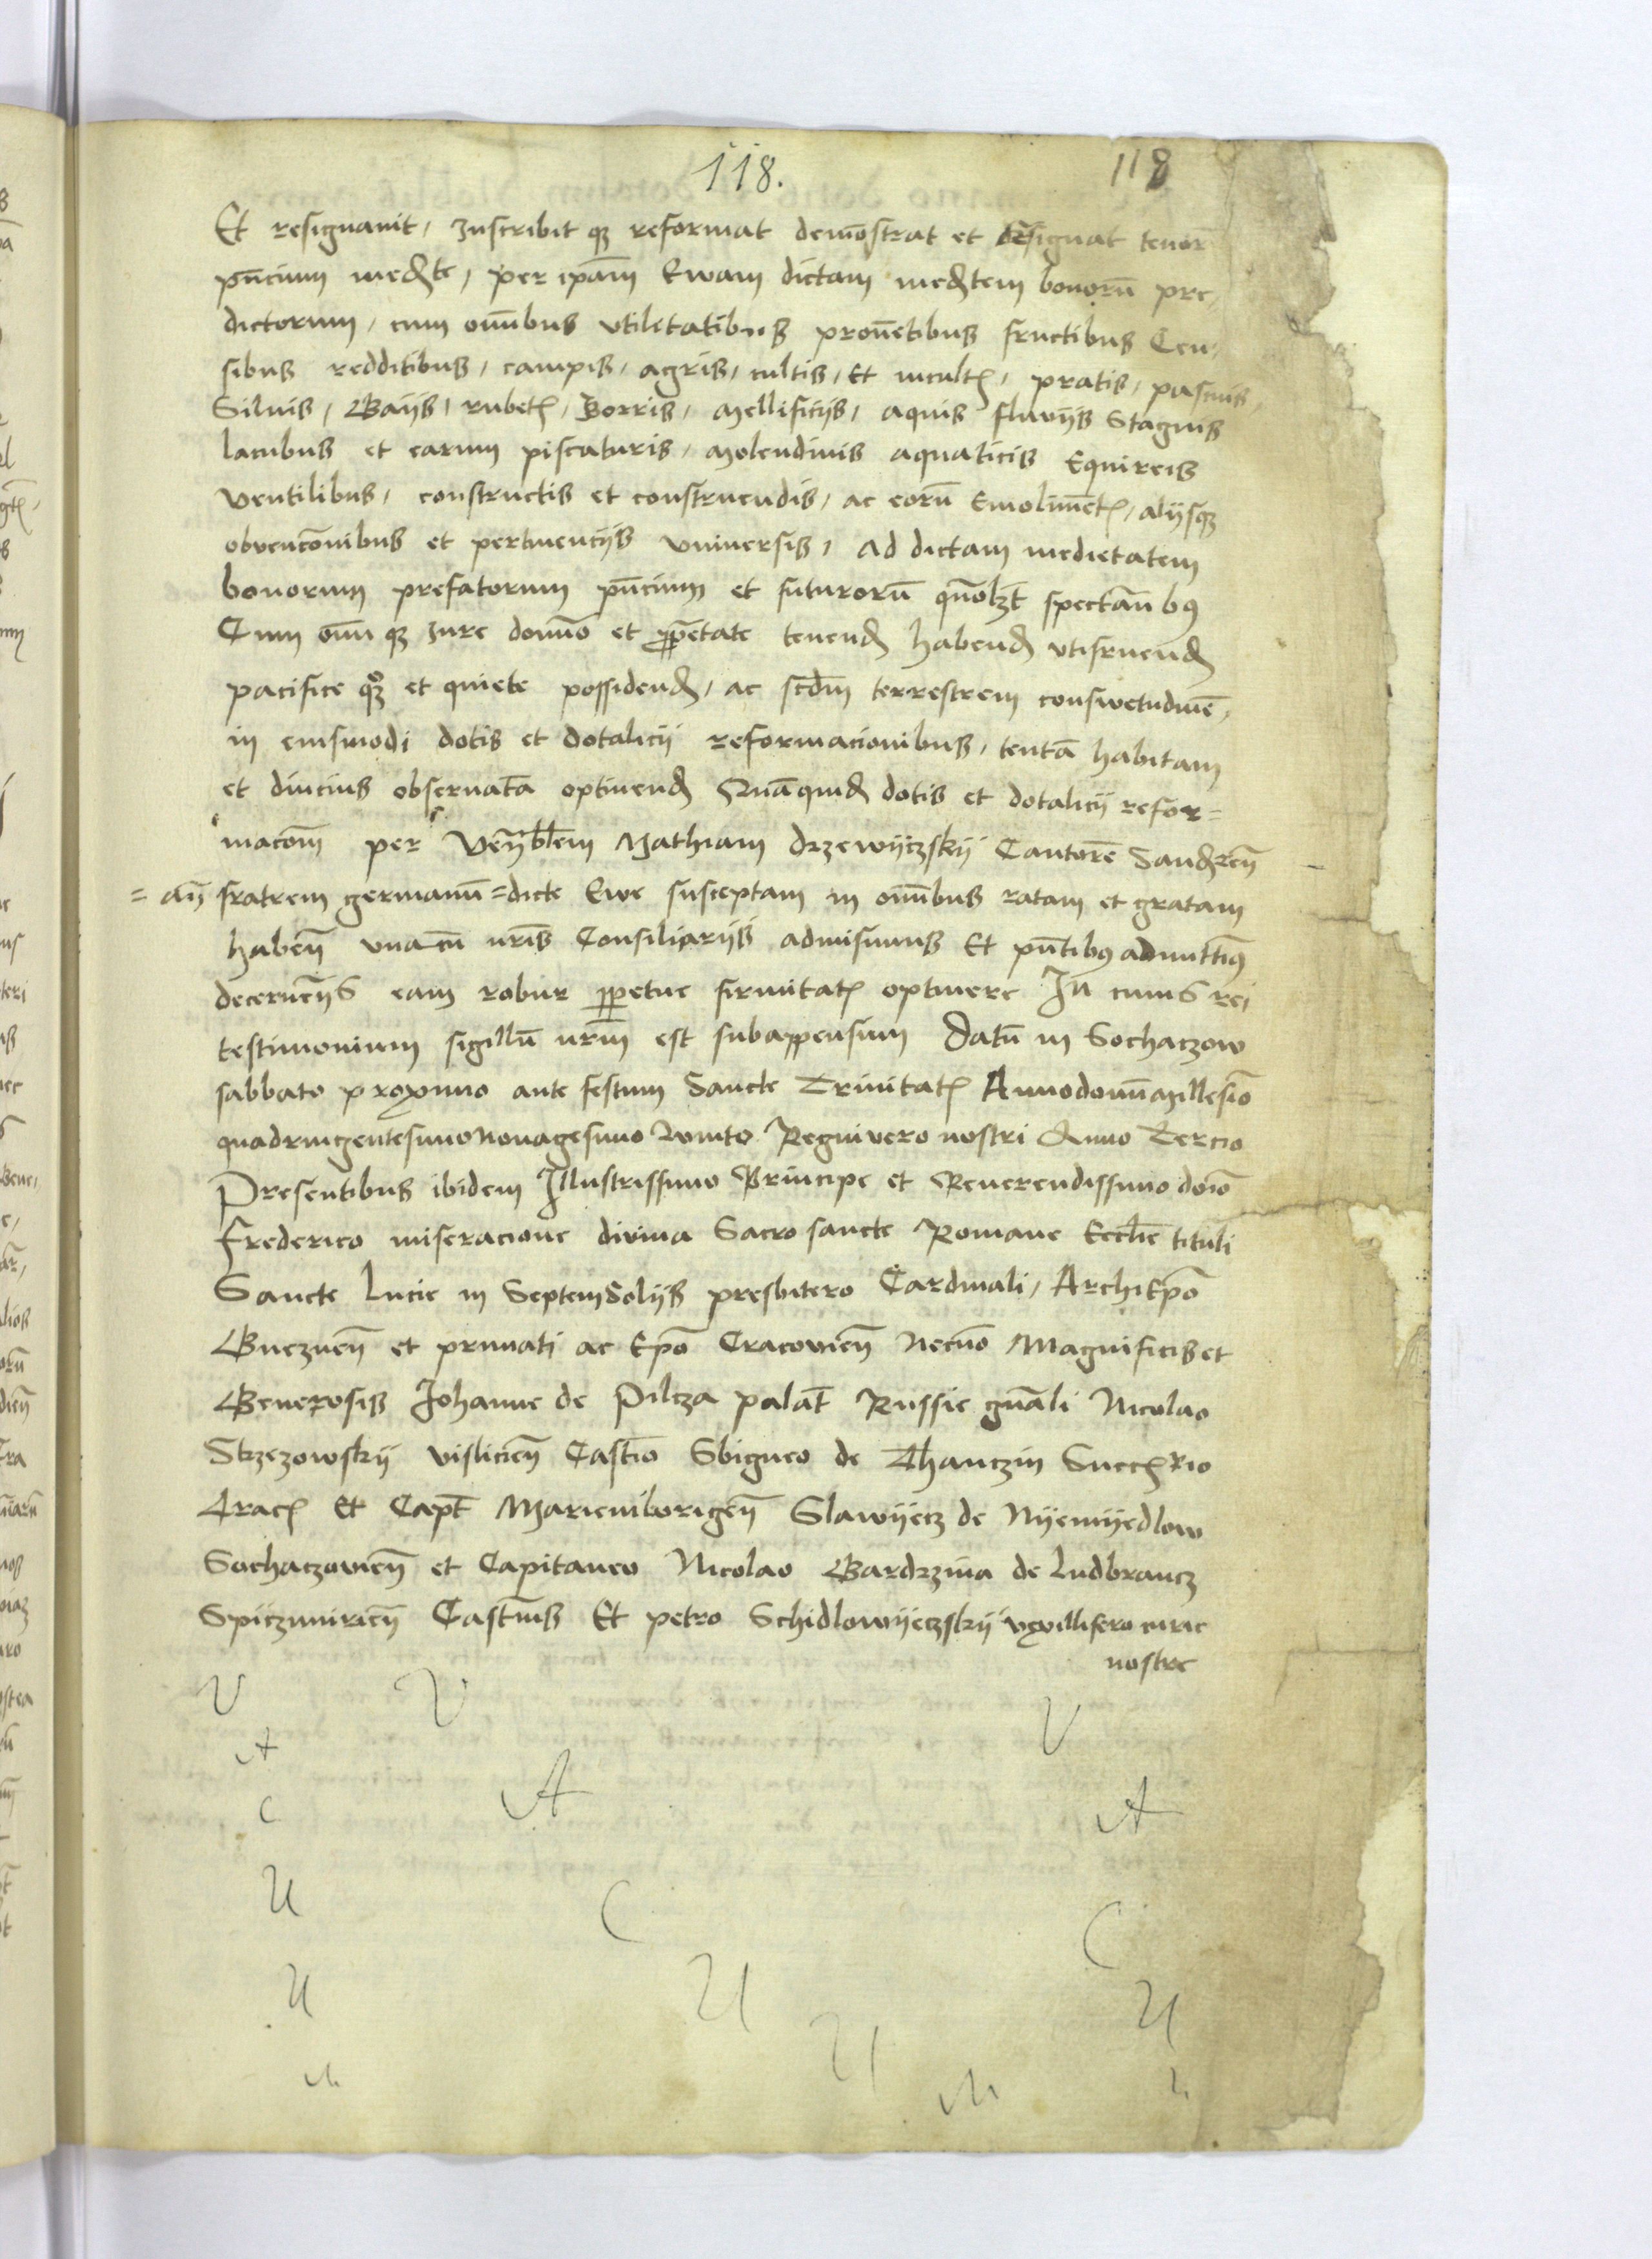 118. 118
Et resignavit, Inscribit qȝ reformat demōstrat et designat tenor
pñcium medᵗᵉ, per ip̄am Ewam dictam medᵗᵉm bonorū pre,
dictorum, cum om̄ibus vtilitatibus prouētibus fructibus Cen,
sibus redditibus, campis, agris, cultis, Et incultꝭ, pratis, pascuis,
Siluis, Gaijs, rubetꝭ, Borris, Mellificijs, aquis fluvijs Stagnis
lacubus et earum piscaturis, Molendinis aquaticis Equireis
ventilibus, constructis et construendis, ac eorū Emolimētꝭ, alijsqȝ
obvencōnibus et pertinencijs vniversis, Ad dictam medietatem
bonorum prefatorum pñcium et futurorū quōlȝt spectānbꝰ
Cum om̄i qȝ Iure domīo et ꝓprietate tenend habend vtifruend
pacifice qȝ et quiete possidend, ac scd̄m terrestrem conswetudinē,
in eiusmodi dotis et dotalicij reformacionibus, tentā habitam
et diucius obseruatā optinend Quāquid dotis et dotalicij refor=
macōm per Ven̄blēm Mathiam Drzewijczskij Cantorē Sandȝ̄reñ
= am̄ fratrem germanū = dicte Ewe susceptam in om̄ibus ratam et gratam
habeñ vnacū nr̄is Consiliarijs admisimus Et pñtibꝰ admittimꝰ
decerneñs eam robur ꝑpetue firmitatꝭ optinere In cuius rei
testimonium sigillū nr̄m est subappensum Datū in Sochaczow
sabbato proximo ante festum Sancte Trinitatꝭ Anno domī Millesīo
quadringentesimo Nonagesimo Quinto Regni vero nostri Anno Tercio
Presentibus ibidem Illustrissimo Principe et Reuerendissimo dōio
Frederico miseracione divina Sacro sancte Romane Eccl̄ie tituli
Sancte Lucie in Septem Solijs presbitero Cardinali, ArchiEp̄o
Gnezneñ et primati ac Ep̄o Cracovieñ Necnō Magnificis et
Generosis Johanne de Pilcza palat̄ Russie gn̄ali Nicolao
Strzezowskij visliciēn Castīo Sbigneo de Thanczin Succꝭrio
Cracꝭ Et Capt̄ Marieniborigeñ Slawijecz de Nijemijedlow
Sochaczovieñ et Capitaneo Nicolao Gardzina de Ludbrancz
Spiczimirieñ Castn̄is Et petro Schidlowijeczskij vexillifero curie
nostre
V V V
A A A
C C C
U U U
U U
M M